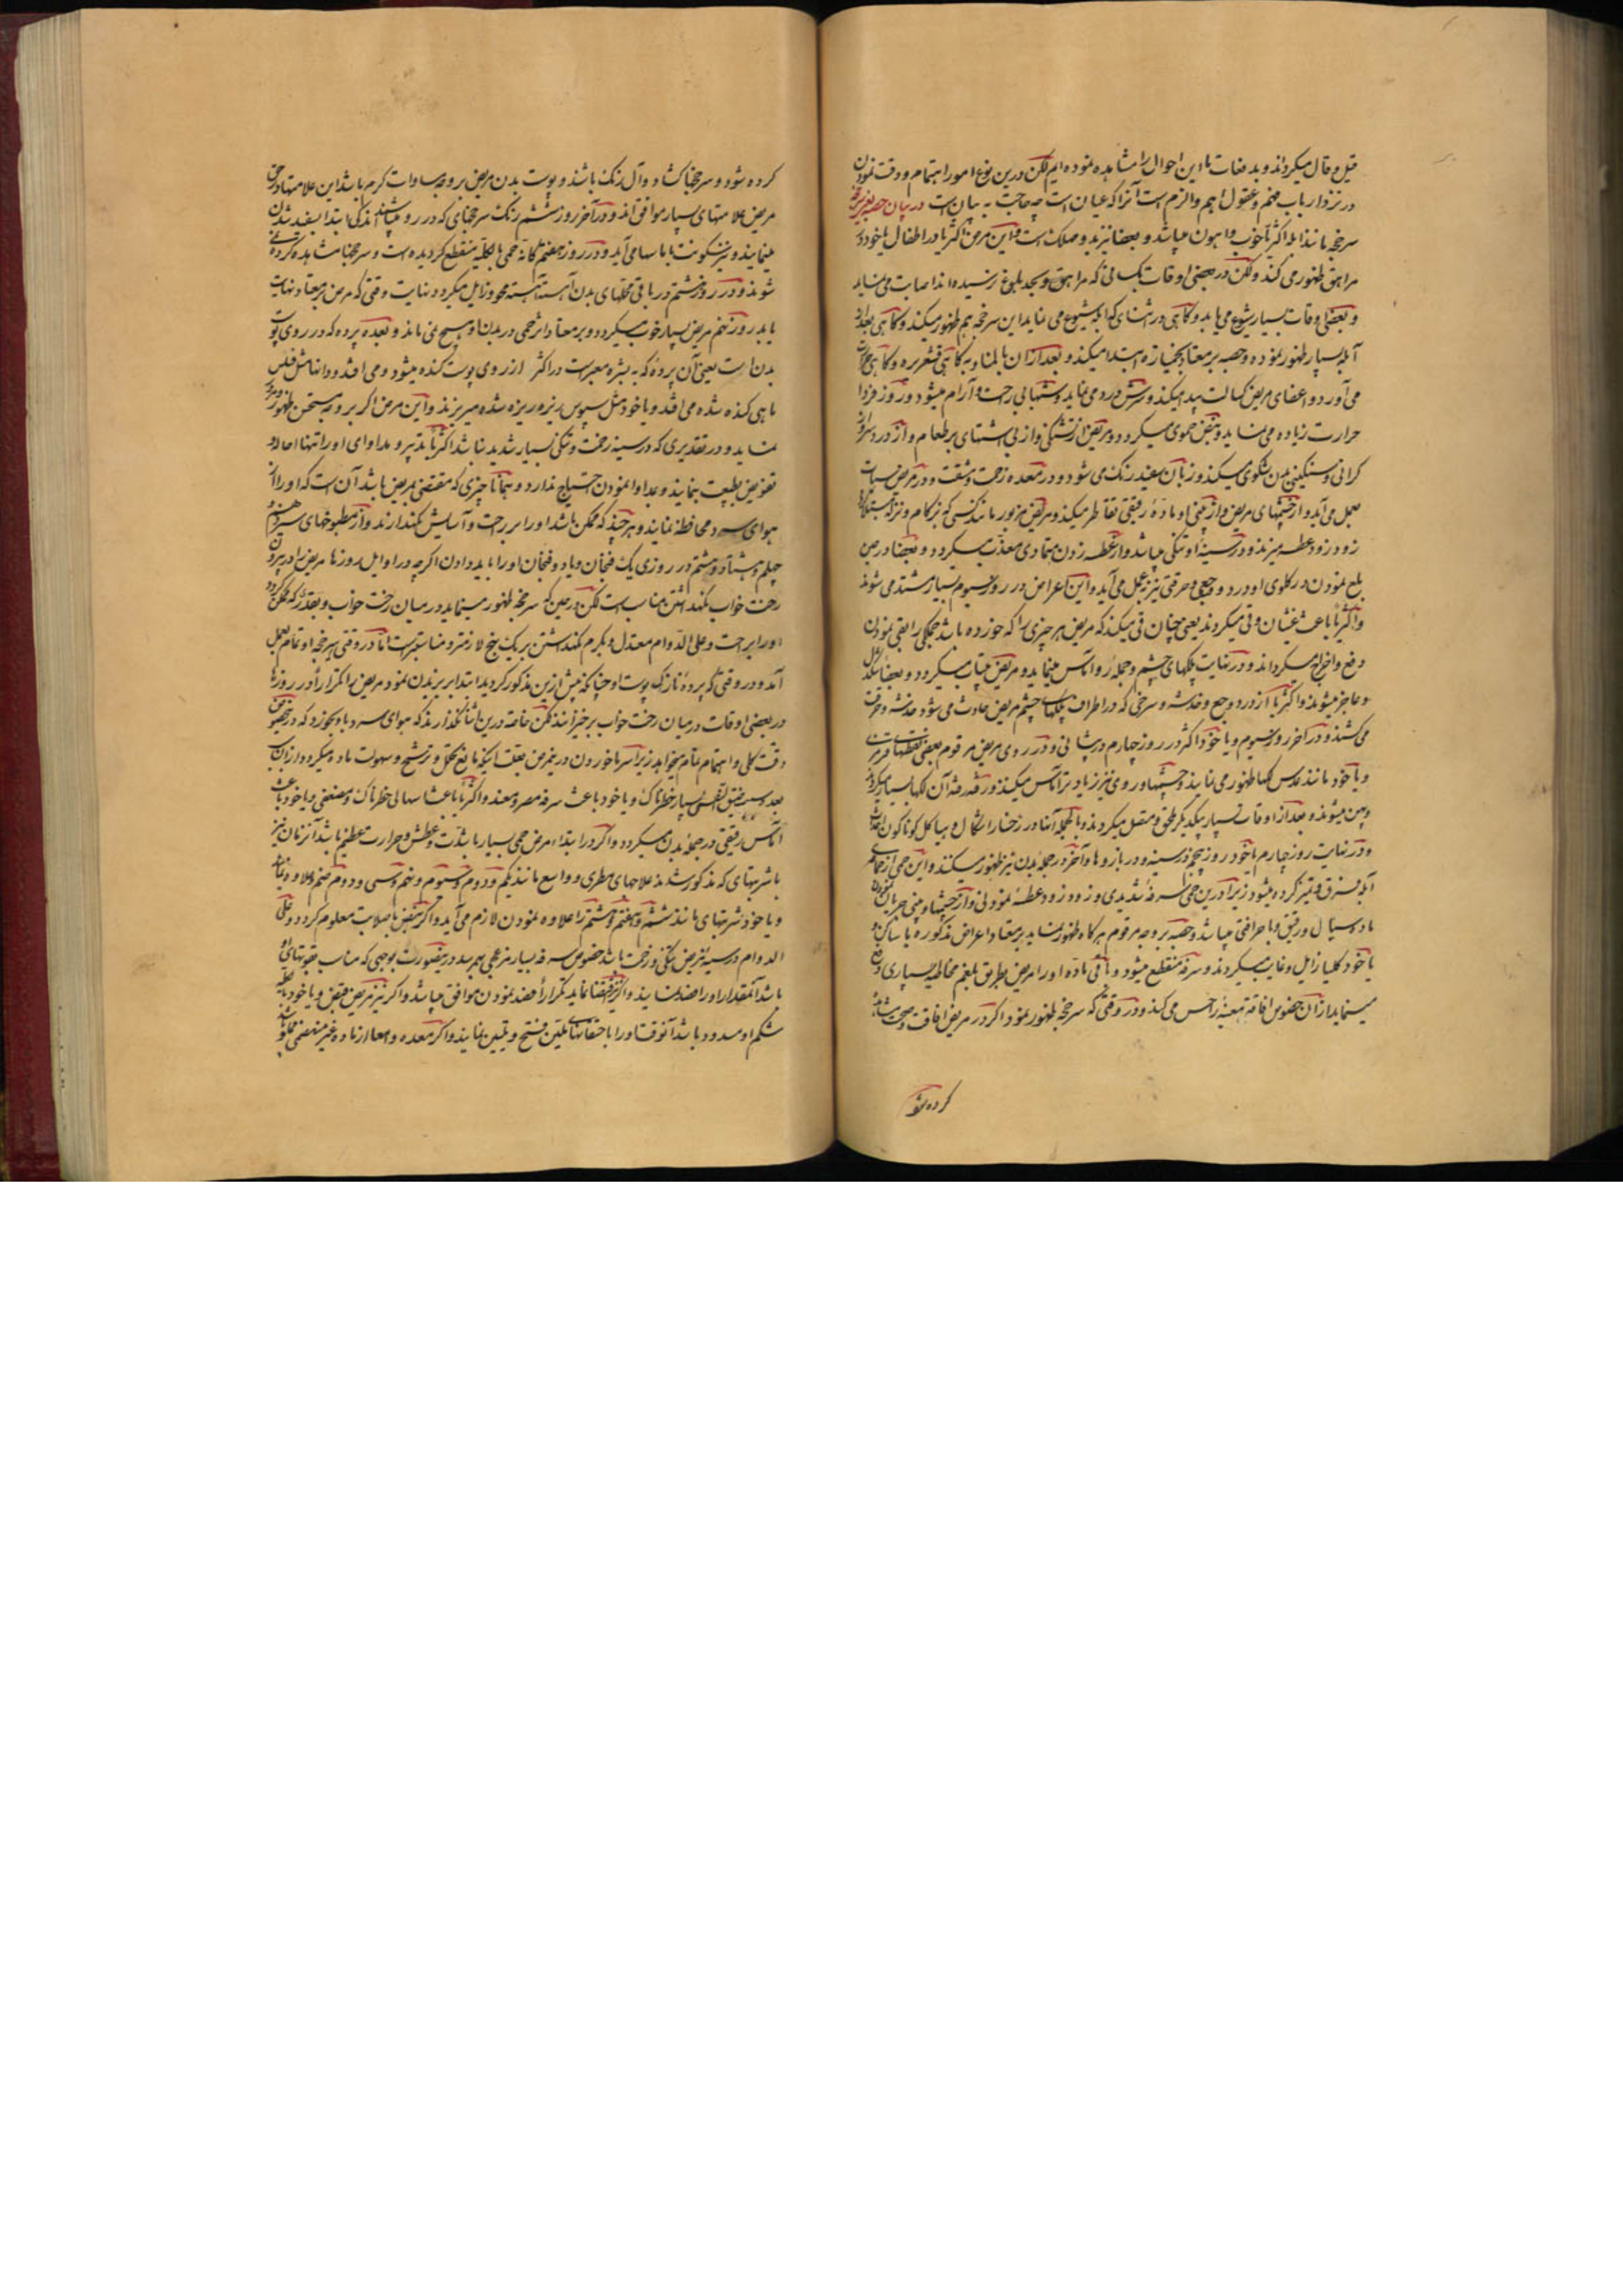 قیل و قال میکرداند و بدفعات ما این احوال را مشاهده نموده ایم لکن درین نوع امور اهتمام و دقت نمودن
در نزد ارباب فهم و عقول اهم و الزم است آنرا که عیان است چه حاجت به بیان است در بیان حصبه یعنی سرخجه
سرخجه مانند ابله اکثریا خوب و اهون میباشد و بعضا نیز بد و مهلک است و این مرض اکثریا در اطفال یا خود در
مراهق ظهور می کند ولکن در بعضی اوقات بکسانی که مراهق و بحد بلوغ رسیده اند اصابت می نماید
و بعضی اوقات بسیار شیوع می یابد و کاهی در اثنای که ابله شیوع می نماید این سرخجه هم ظهور میکند و کاهی بعد از
آبله بسیار ظهور نموده و حصبه بر معتاد بخمیازه ابتدا میکند و بعد ازان بالمناوبه کاهی قشعریره و کاهی حرارت
می آورد و اعضای مریض کسالت پیدا میکند و سرش درد می نماید و شبها بی راحت و آرام میشود و روز فردا
حرارت زیاده می نماید و نبض حموی میکردد و مریض از تشنکی و از بی اشتهای بر طعام و از درد سر و از
کرانی و سنکینی بدن شکوی میکند و زبان سفید رنک می شود و در معده زحمت و مشقت و در مریض سبات
بعمل می آید و از چشمهای مریض و از بینی او ماده رقیقی تقاطر میکند و مریض مزبور مانند کسی که بزکام و نزله مبتلا
زود زود عطسه میزند و در سینه او تنکی میباشد و از عطسه زدن متمادی معذب میکردد و بعضا در حین
بلع نمودن در کلوی او درد و وجعی و حرقتی نیز بعمل می آید و این اعراض در روز سیوم بسیار مشتد می شوند
و اکثریا باعث غثیان و قی میکردند یعنی چنان قی میکند که مریض هر چیزی را که خورده باشد جملکی را بقی نمودن
دفع و اخراج میکرداند و در نهایت پلکهای چشم و جمله رو آماس مینماید و مریض بیتاب میکردد و بعضا
و عاجز میشوند و اکثریا از درد و وجع و خدشه و سرخی که در اطراف پلکهای چشم مریض حادث می شود خدشه و حرقت
می کشند و در آخر روز سیوم و یا خود اکثر در روز چهارم در پیشانی و در روی مریض مرقوم بعضی نقطهای قرمزی
و یا خود مانند عدس لکها ظهور می نمایند و چشمها و روی نیز زیادتر آماس میکند و رفته رفته آن لکها بسیار میکردند
و پهن میشوند و بعد از اوقات بسیار بیکدیکر ملحق و متصل میکردند و بالجمله آنها در رخسار اشکال و هیاکل کوناکون
و در نهایت روز چهارم یا خود روز پنجم در سینه و در بازوها و آخر در جمله بدن نیز ظهور میکنند و این حمی از حمای
آبله فرق و تمیز کرده میشود زیرا درین حمی سرفه شدیدی و زود زود عطسه نمودنی و از چشمها و بینی جریان نمودن
ماده سیال و رقیق و با حرافتی میباشد و حصبه بر وجه مرقوم هر کاه ظهور نماید بر معتاد اعراض مذکوره یا ساکن و
یا خود کلیا زایل و غایب میکردند و سرفه منقطع میشود و باقی ماده او را مریض بطریق بلغم مخاطیه بسیاری دفع
مینماید از آن خصوص افاقه معینه را حس می کند و در وقتی که سرخجه ظهور نمود اکر در مریض افاقت و صحت مشاهده
کرده شود
کرده شود و سرخجها کشاد و آل رنک باشند و پوست بدن مریض بر وجه مساوات کرم باشد این علامتها در حق
مریض علامتهای بسیار موافق اند و در آخر روز ششم رنک سرخجهای که در رو میباشند اندکی ابتدا بسفید شدن
مینمایند و نیز سکونت بآماسها می آید و در روز هفتم کانه حمی بالکلیه منقطع کردیده است و سرخجها مشاهده کرده نمی
شوند و در روز هشتم در باقی محلهای بدن آهسته آهسته محو و زایل میکردد و نهایت وقتی که مرض بر معتاد نهایت
یابد روز نهم مریض بسیار خوب میکردد و بر معتاد اثر حمی در بدن او هیچ نمی ماند و بعده پرده که در روی پوست
بدن است یعنی آن پرده که به بشره معبر است در اکثر از روی پوست کنده میشود و می افتد و دانها مثل فلس
ماهی کنده شده می افتد و یا خود مثل سپوس ریزه ریزه شده میریزند و این مرض اکر بر وجه مستحسن ظهور و مرور
نماید و در تقدیری که در سینه زحمت و تنکی بسیار شدید نباشد اکثریا تدبیر و مداوای او را تنها احاله و
تفویض بطبیعت نمایند و بمداوا نمودن احتیاج ندارد و همانا چیزی که مقتضی بمریض باشد آن است که او را از
هوای سرد محافظه نمایند و هر چند که ممکن باشد او را بر راحت و آسایش بکهدارند و از مطبوخهای سیزدهم و
چهلم و هشتاد و هشتم در روزی یک فنجان و یا دو فنجان او را باید دادن اکرچه در اوایل روزها مریض را در بیرون
رخت خواب نکهداشتن مناسب است لکن در حین که سرخجه ظهور مینماید در میان رخت خواب و بقدر که ممکن کردد
او را براحت و علی الدوام معتدل و بکرم نکهداشتن بر یک نهج لازمتر و مناسبتر است اما در وقتی سرخجه او تمام بعمل
آمد و در وقتی که پرده نازک پوست او چنانکه پیش ازین مذکور کردید ابتدا بریزیدن نمود مریض را مکررا در روزها
در بعضی اوقات در میان رخت خواب برخیزانند لکن خاصة درین اثنا نکذارند که هوای سرد باو بخورد که در خصوص
دقت کلی و اهتمام تمام میخواهد زیرا سرما خوردن درین مرض بعلت اینکه مانع تحلل و ترشح و سهولت ماده میکردد از آن
بعد سبب ضیق نفسی بسیار خطرناک و یا خود باعث سرفه مصر و معند و اکثریا باعث اسهالی خطرناک و مضعفی و یا خود باعث
آماس رقیقی در جمله بدن میکردد و اکر در ابتداء مرض حمی بسیار باشدت و عطش و حرارت عظیم باشد آنزمان نیز
با شربتهای که مذکور شدند علاجهای مطری و واسع مانند یکم و دوم و سیوم و پنجم و سی و دوم ضم و علاوه نمایند
و یا خود شربتهای مانند ششم و هفتم و هشتم را علاوه نمودن لازم می آید و اکر نبض باصلابت معلوم کردد و علی
الدوام در سینه مریض تنکی و زحمت باشد خصوص سرفه بسیار مزعجی بهم رسد درینصورت بوجهی که مناسب بقوتهای او
باشد آنمقدار او را فصد نمایند و اکر اقتضا نماید تکرار افصد نمودن موافق میباشد و اکر نیز مریض قبض و یا خود
شکم او مسدود باشد آنوقت او را با حقنهای ملین فتح و تلیین نمایند و اکر معده و امعا از ماده غیر منهضمی مملو باشد